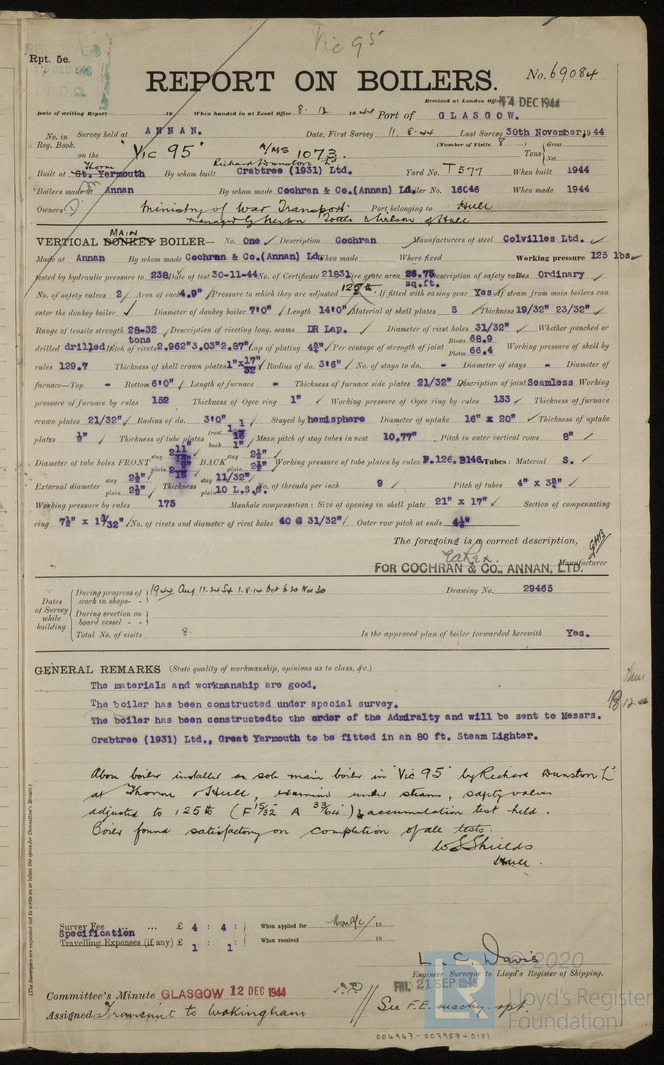 Vic 95
Rpt. 5e.
REPORT ON BOILERS.
No. 69084
Received at London Office 14 DEC 1944
Date of writing Report 19 When handed in at Local Office 8.12.1944 Port of GLASGOW.
No. in Reg. Book. Survey held at ANNAN. Date, First Survey 11.8.44 Last Survey 30th November, 1944
on the "Vic 95" A/MS 1073. (Number of Visits 8) Tons Gross Net
Built at St. Yarmouth Thorne By whom built Crabtree (1931) Ltd. Richard Dunston Ld Yard No. T577 When built 1944
Boilers made at Annan By whom made Cochran & Co.(Annan) Ld. Boiler No. 16C46 When made 1944
Owners Ministry of War Transport Port belonging to Hull
VERTICAL DONKEY MAIN BOILER— No. One Description Cochran Manufacturers of steel Colvilles Ltd.
Made at Annan By whom made Cochran & Co.(Annan) Ld. When made Where fixed Working pressure 125 lbs
tested by hydraulic pressure to 238 Date of test 30-11-44 No. of Certificate 21831 Fire grate area 26.75 sq.ft. Description of safety valves Ordinary
No. of safety valves 2 Area of each 4.9" Pressure to which they are adjusted 125 lb If fitted with easing gear Yes If steam from main boilers can
enter the donkey boiler Diameter of donkey boiler 7'0" Length 14'0" Material of shell plates S Thickness 19/32" 23/32"
Range of tensile strength 28-32 tons Description of riveting long. seams DR Lap. Diameter of rivet holes 31/32" Whether punched or
drilled drilled Pitch of rivets 2.962"3.03"2.87" Lap of plating 4¾" Per centage of strength of joint Rivets 68.9 Plates 66.4 Working pressure of shell by
rules 129.7 Thickness of shell crown plates 1" x 17/32" Radius of do. 3'6" No. of stays to do. - Diameter of stays - Diameter of
furnace—Top - Bottom 6'0" Length of furnace - Thickness of furnace side plates 21/32" Description of joint Seamless Working
pressure of furnace by rules 152 Thickness of Ogee ring 1" Working pressure of Ogee ring by rules 133 Thickness of furnace
crown plates 21/32" Radius of do. 3'0" Stayed by hemisphere Diameter of uptake 16" x 20" Thickness of uptake
plates ½" Thickness of tube plates front back 1" Mean pitch of stay tubes in nest 10.77" Pitch in outer vertical rows 8"
Diameter of tube holes FRONT stay plain BACK stay 2½" plain 2½" Working pressure of tube plates by rules F.126. B146. Tubes: Material S.
External diameter stay 2½" plain 2½" Thickness stay 11/32" plain 10 L.S.G. No. of threads per inch 9 Pitch of tubes 4" x 3¾"
Working pressure by rules 175 Manhole compensation: Size of opening in shell plate 21" x 17" Section of compensating
ring 7½" x 1 1/32" No. of rivets and diameter of rivet holes 40 @ 31/32" Outer row pitch at ends 4½"
The foregoing is a correct description,
FOR COCHRAN & CO., ANNAN, LTD. Manufacturer
Dates of Survey while building
During progress of work in shops- - 1944 Aug 11.24 Sep 1.8.14 Oct 6.20 Nov 30
During erection on board vessel - -
Total No. of visits 8.
Drawing No. 29465
Is the approved plan of boiler forwarded herewith Yes.
GENERAL REMARKS (State quality of workmanship, opinions as to class, &c.)
The materials and workmanship are good.
The boiler has been constructed under special survey.
The boiler has been constructedto the order of the Admiralty and will be sent to Messrs.
Crabtree (1931) Ltd., Great Yarmouth to be fitted in an 80 ft. Steam Lighter.
Above boiler installed as sole main boiler in "Vic 95" by Richard Dunston Ld
at Thorne & Hull, examined under steam, safety valves
adjusted to 125 lb (F 15/32 A 33/64) & accumulation test held.
Boiler found satisfactory on completion of all tests.
W S Shields
Hull.
Survey Fee ... £ 4 : 4 : When applied for 19
Specification
Travelling Expenses (if any) £ 1 : 1 : When received 19
L. C. Davis
Engineer Surveyor to Lloyd's Register of Shipping.
Committee's Minute GLASGOW 12 DEC 1944
FRI. 21 SEP 1945
Assigned Transmit to Wokingham
See F.E. machy. rpt.
2020
Lloyd's Register
Foundation
004947-007957-0101